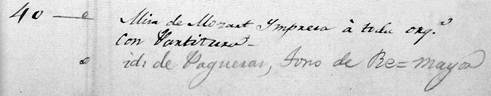 40 — e Misa de Mozart Ympresa à toda orq.ª
con Partitura —
e id. de Pagueras, tono de Re = mayor